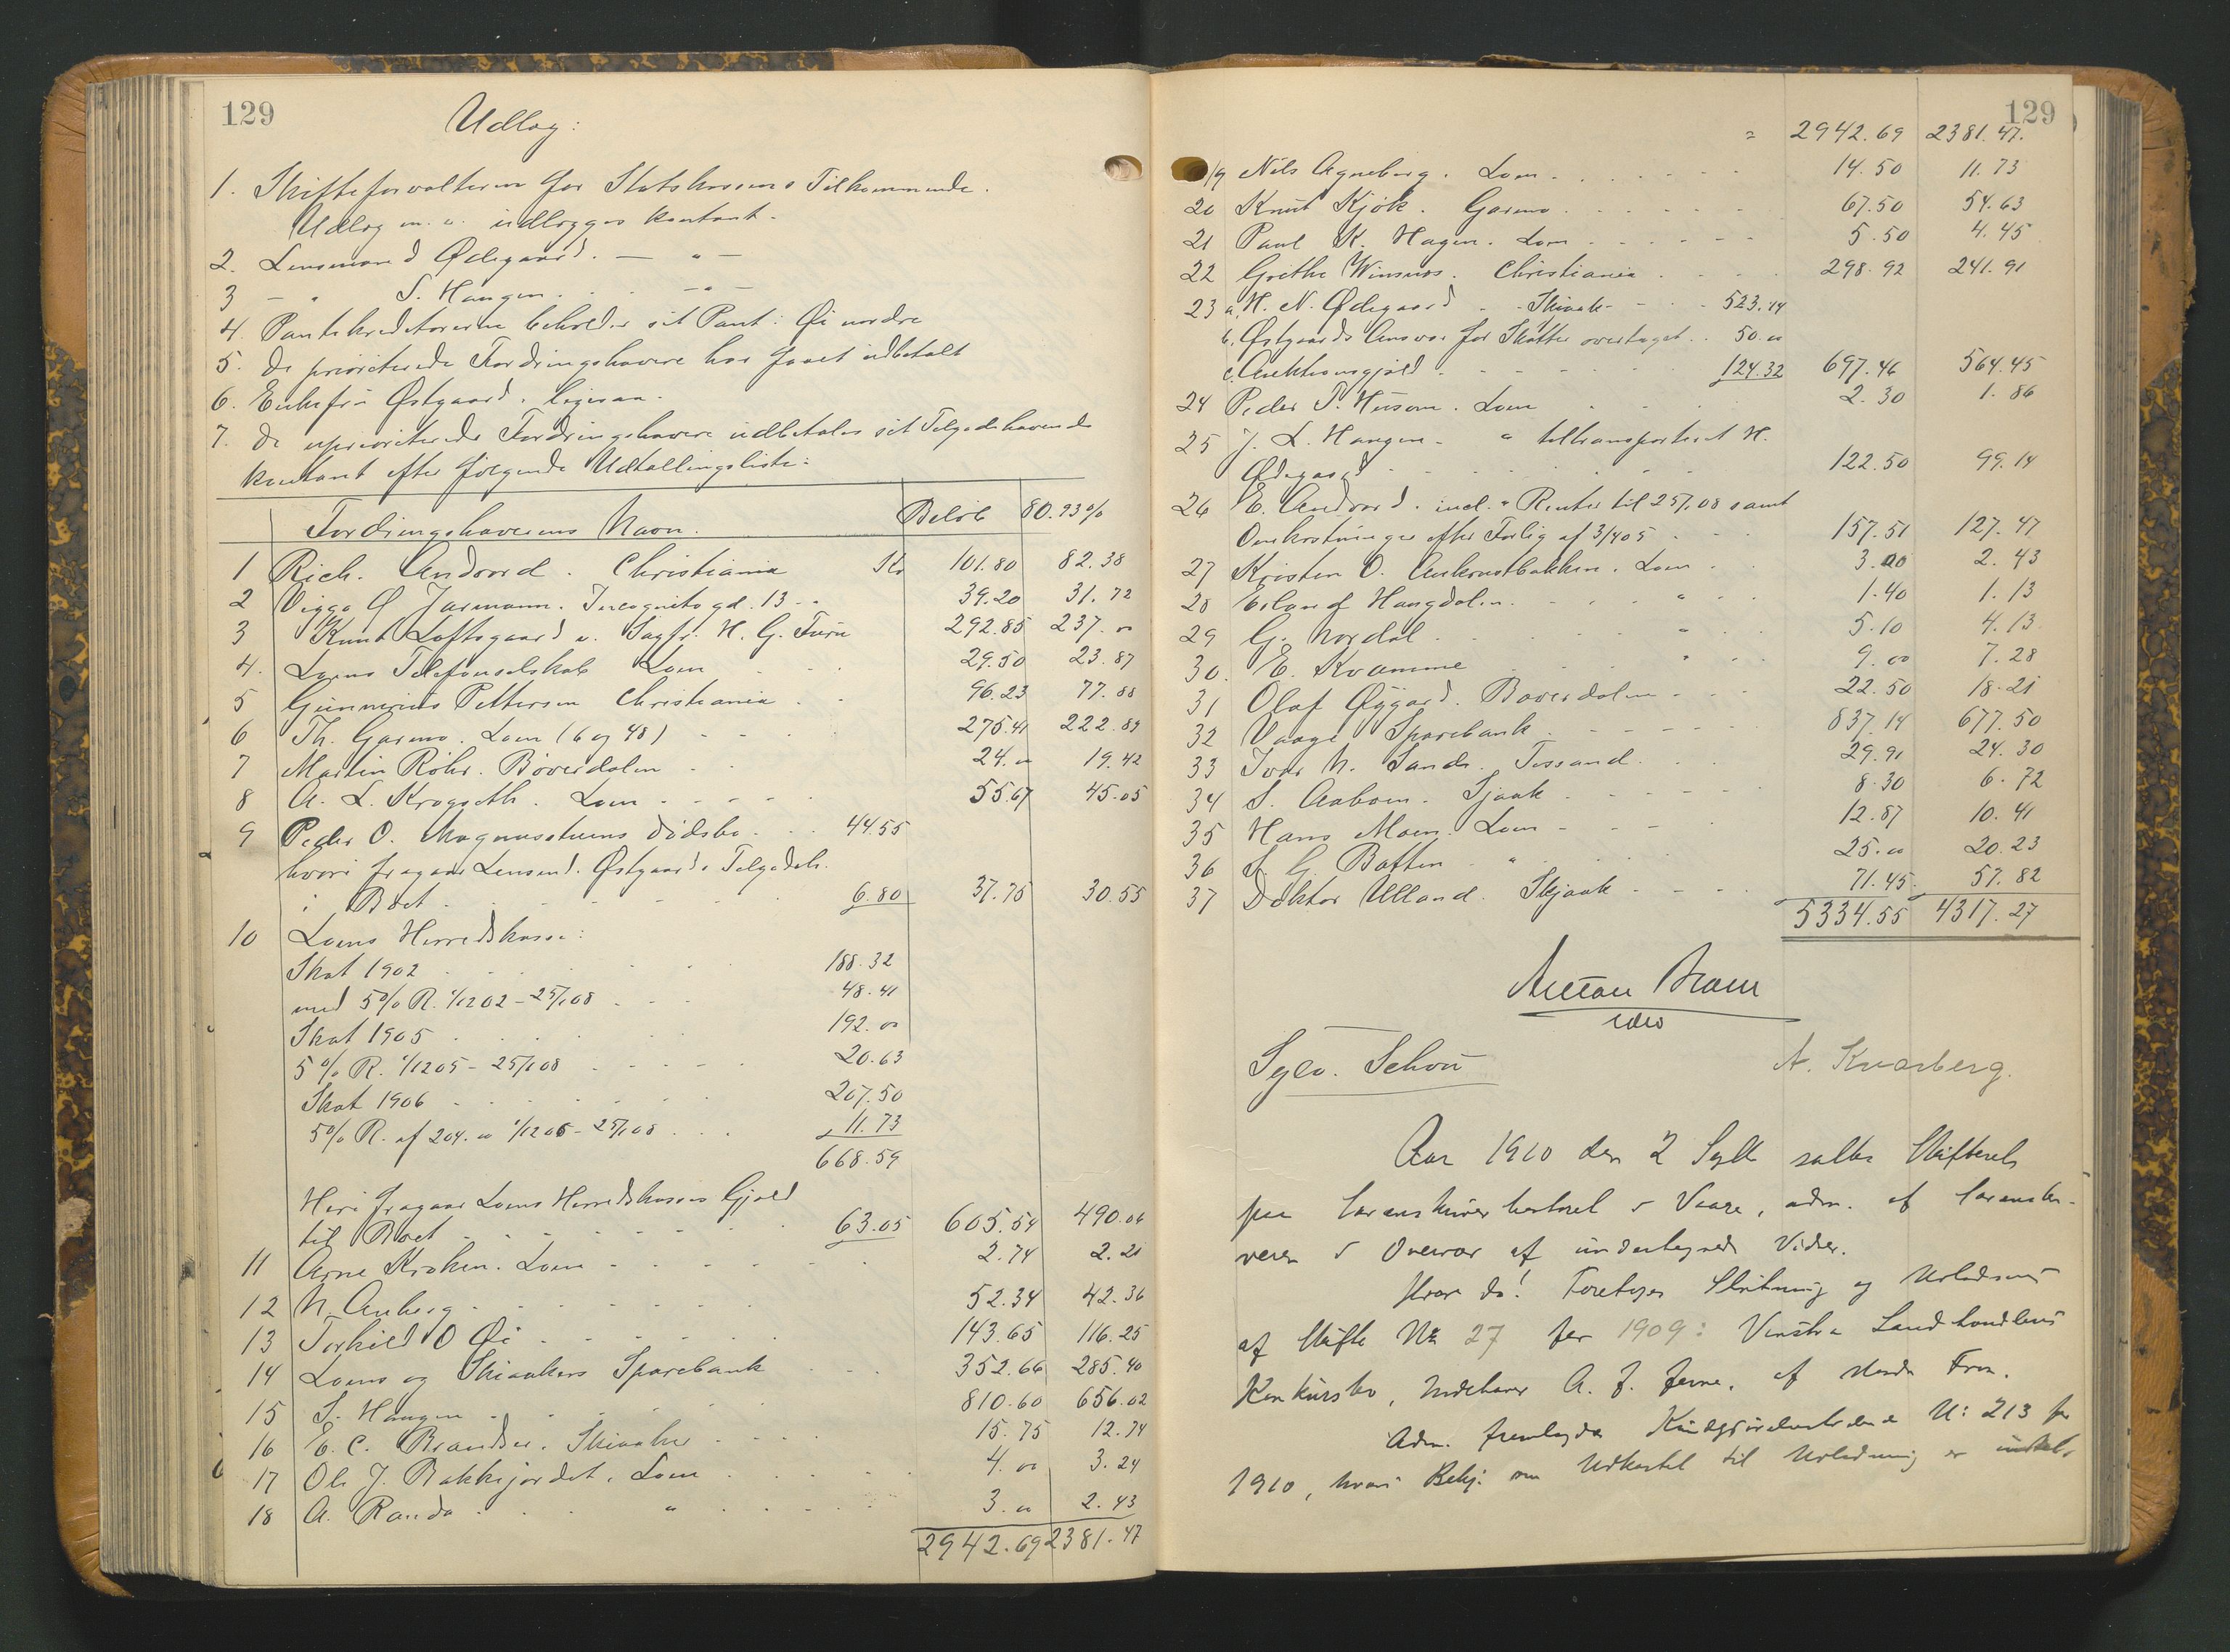 129
Udlæg:
1. Skifteforvalteren for Statskassens Tilkommende.
Udlæg m. v. udlægges kontant.
2. Lensmand Ødegaard. — " —
3 — " S. Haugen. — " —
4. Pantekreditorerne beholder sit Pant: Øi nordre
5. De prioriterede Fordringshavere har faaet udbetalt
6. Enkefru Østgaard. ligesaa.
7. De uprioriterede Fordringshavere udbetales sit Tilgodehavende
kontant efter følgende Udtallingsliste:
Fordringshaverens Navn. Beløb 80.93%
1 Rich. Andvord. Christiania Kr 101.80 82.38
2 Viggo O Jarmann. Incognitogd. 13 - " 39.20 31.72
3 Knut Loftsgaard v. Sagfr. H. G. Furu 292.85 237.00
4. Loms Telefonselskab Lom 29.50 23.87
5 Gunnerius Pettersen Christiania 96.23 77.88
6 Th. Garmo. Lom (6 og 48) 275.41 222.89
7 Martin Röhr. Bøverdalen 24.00 19.42
8 A. L. Krogseth. Lom 55.67 45.05
9 Peder O. Magnusstuens Dødsbo 44.55
hvori fragaar Lensmd. Østgaards Tilgodeh.
i Boet 6.80 37.75 30.55
10 Loms Herredskasse:
Skat 1902 188.32
med 5% R. 1/12 02 - 25/1 08 48.41
Skat 1905 192.00
5% R. 1/12 05 - 25/1 08 20.63
Skat 1906 207.50
5% R. af 204.00 1/12 06 - 25/1 08 11.73
668.59
Heri fragaar Loms Herredskasses Gjæld
til Boet 63.05 605.54 490.06
11 Arne Kroken. Lom 2.74 2.21
12 N. Auberg 52.34 42.36
13 Torkild O Øi 143.65 116.25
14 Loms og Skiaakers Sparebank 352.66 285.40
15 S. Haugen 810.60 656.02
16 E. C. Brandser. Skiaaker 15.75 12.74
17 Ole J. Bakkejordet. Lom 4.00 3.24
18 A. Randa " 3.00 2.43
2942.69 2381.47
129
" 2942.69 2381.47.
19 Nils Agneberg. Lom 14.50 11.73
20 Knut Kjøk. Garmo 67.50 54.63
21 Paul K. Hagen. Lom 5.50 4.45
22 Grethe Winsnes. Christiania 298.92 241.91
23 a. H. N. Ødegaard - Skiaak 523.14
b. Østgaards Ansvar for Skatter overtaget 50.00
c. Auktionsgjæld 124.32 697.46 564.45
24 Peder P. Husom. Lom 2.30 1.86
25 J. L. Haugen - " tiltransporteret H.
Ødegaard 122.50 99.14
26 E. Andvord. incl. Renter til 25/1 08 samt
Omkostninger efter Forlig af 3/4 05 157.51 127.47
27 Kristen O. Aukrustbakken. Lom 3.00 2.43
28 Erland Haugdalen " 1.40 1.13
29 G. Nordal " 5.10 4.13
30. E. Kvamme " 9.00 7.28
31 Olaf Øygard. Bøverdalen 22.50 18.21
32 Vaage Sparebank 837.14 677.50
33 Iver N. Sande. Tessand 29.91 24.30
34 S. Aaboen. Sjaak 8.30 6.72
35 Hans Moen. Lom 12.87 10.41
36 S. G. Botten " 25.00 20.23
37 Doktor Ulland. Skjaak 71.45 57.82
5334.55 4317.27
Sylv. Schou A. Kvarberg.
Aar 1910 den 2 Juli sattes Skifteret
paa Sorenskriverkontoret i Vaage, adm. af Sorenskri-
veren i Overvær af undertegnede Vidner.
Hvor da! Foretoges Slutning og Utlodning
af Skifte No 27 for 1909: Vinstra Landhandleris
Konkursbo, Indehaver A. J. af Nordre Fron.
Adm. fremlagde N: 213 for
1910, hvori Bekj. om Udkastet til Utlodning er